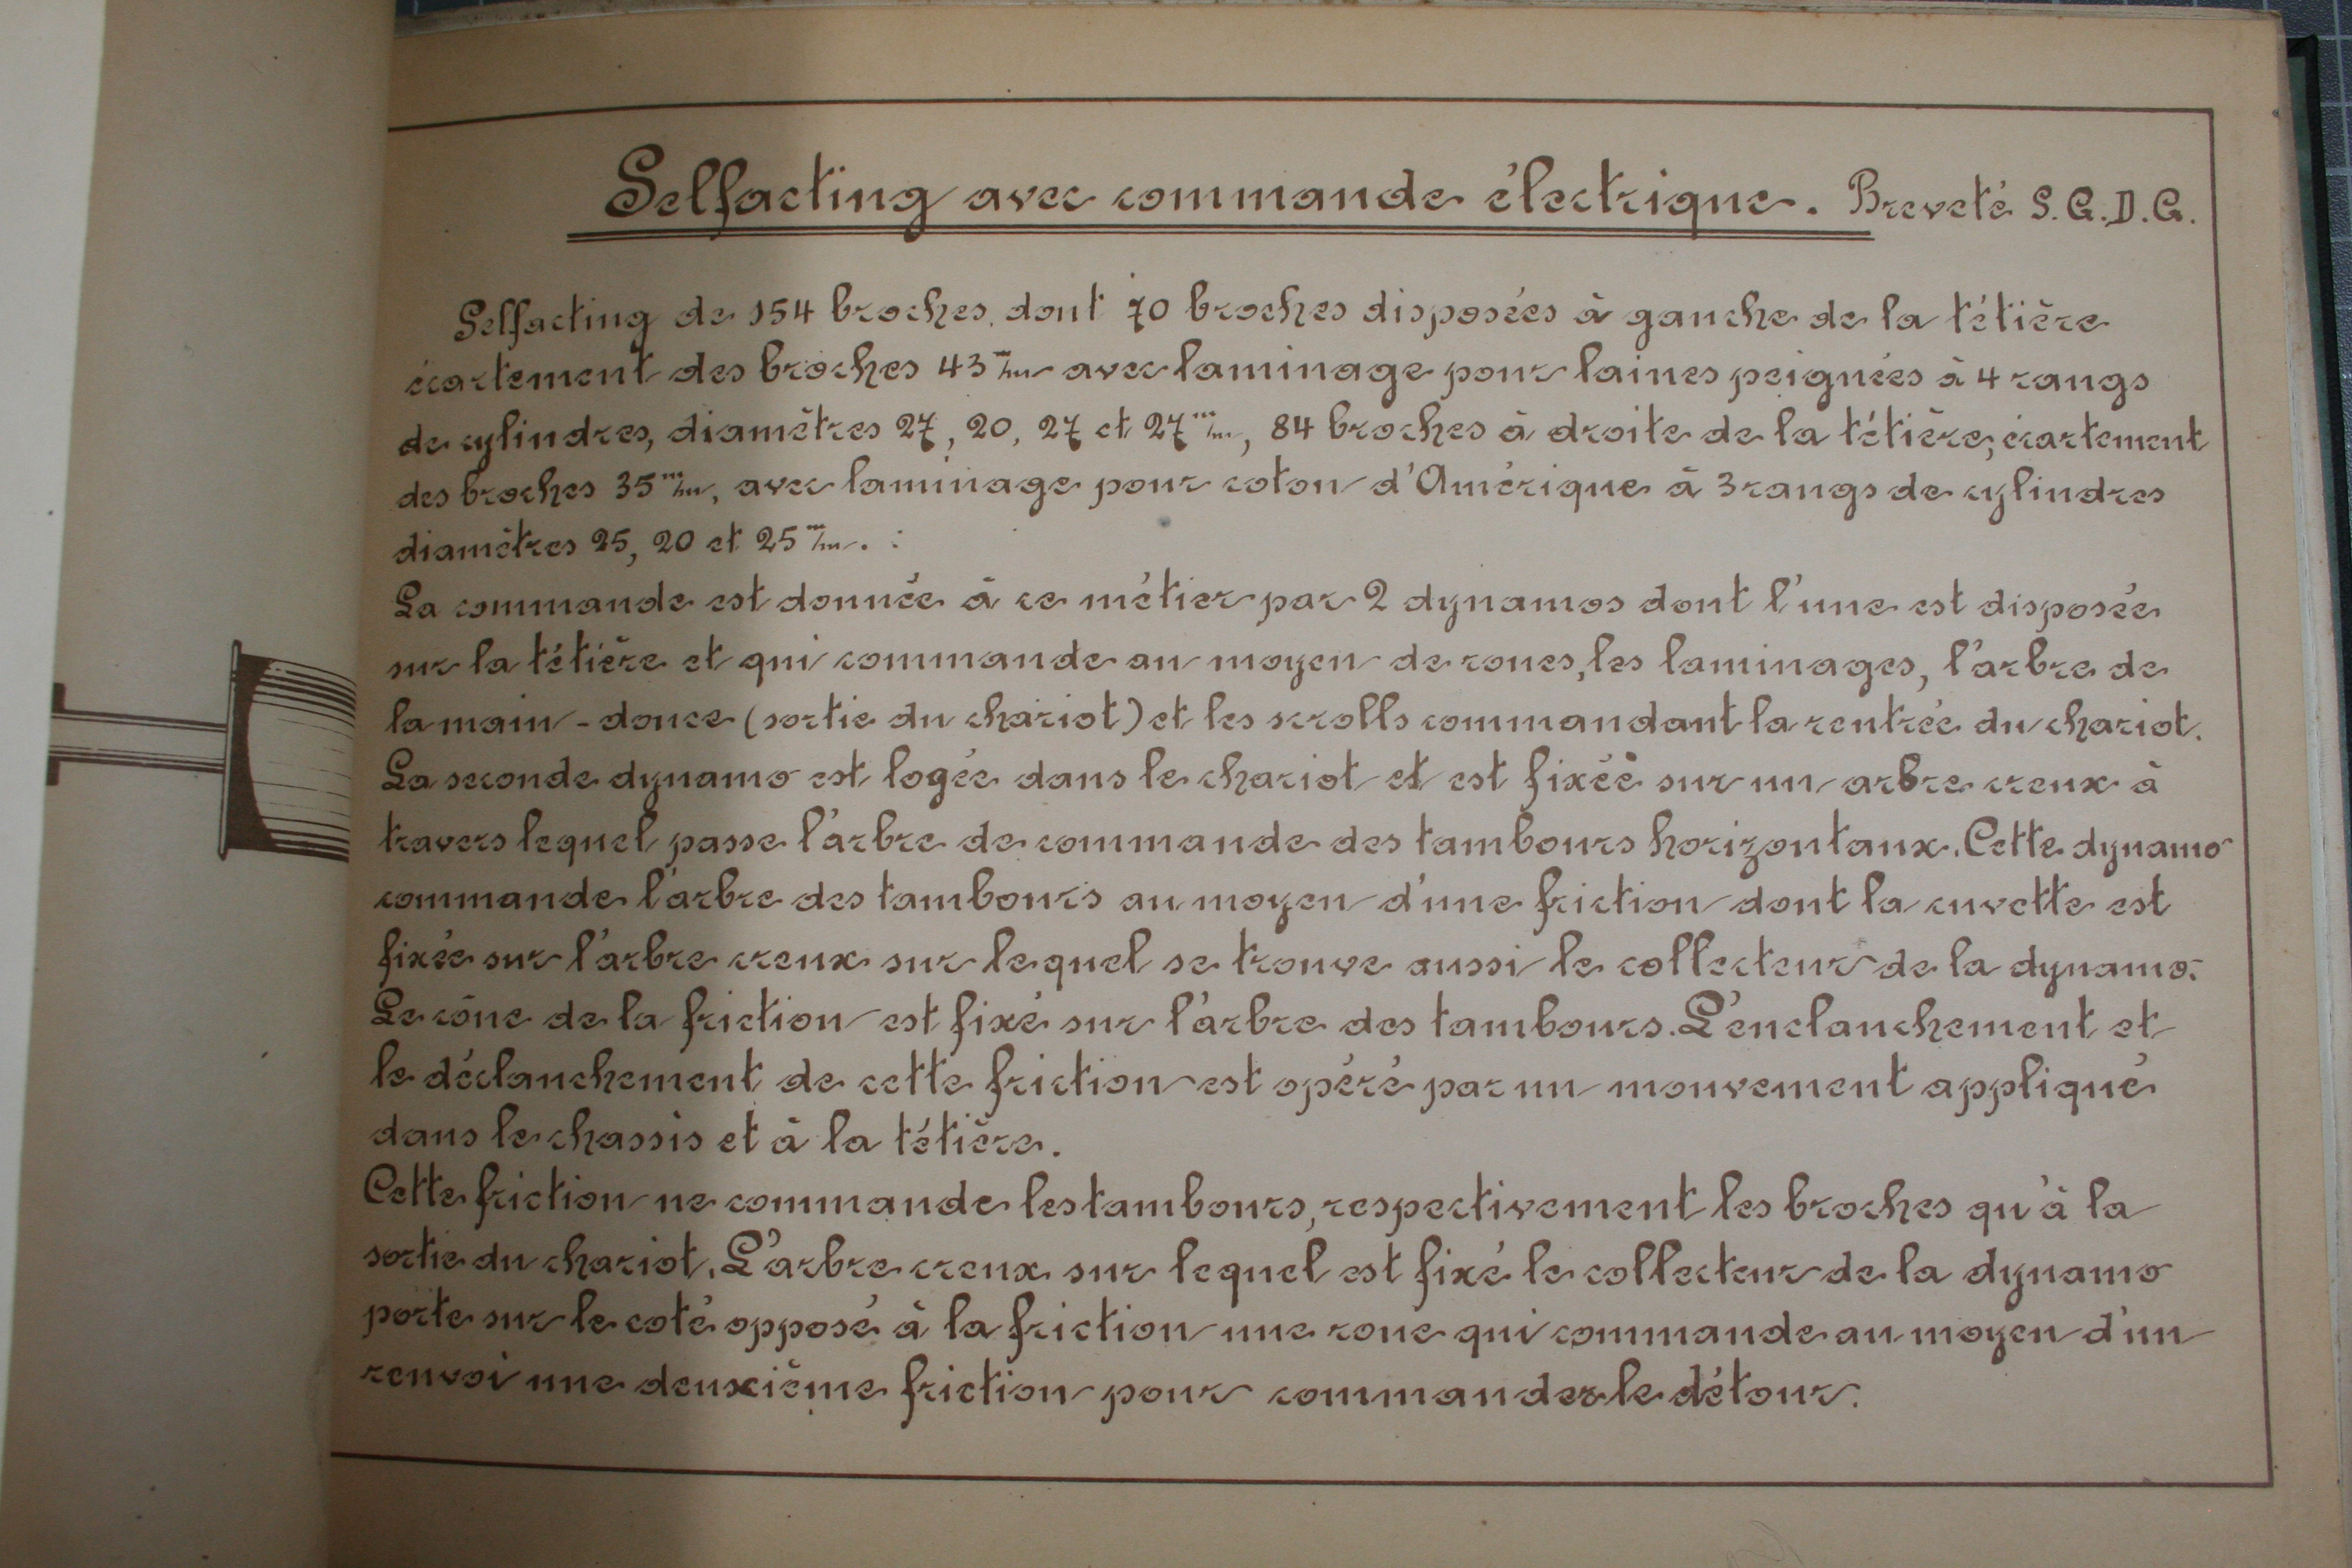 Selfacting avec commande électrique. Breveté S.G.D.G.
Selfacting de 154 broches, dont 70 broches disposées à gauche de la tétière
écartement des broches 43 m/m avec laminage pour laines peignées à 4 rangs
de cylindres, diamètres 27, 20, 27 et 27 m/m, 84 broches à droite de la tétière, écartement
des broches 35 m/m, avec laminage pour coton d'Amérique à 3 rangs de cylindres
diamètres 25, 20 et 25 m/m.
La commande est donnée à ce métier par 2 dynamos dont l'une est disposée
sur la tétière et qui commande au moyen de roues, les laminages, l'arbre de
la main-douce (sortie du chariot) et les scrolls commandant la rentrée du chariot.
La seconde dynamo est logée dans le chariot et est fixée sur un arbre creux à
travers lequel passe l'arbre de commande des tambours horizontaux. Cette dynamo
commande l'arbre des tambours au moyen d'une friction dont la cuvette est
fixée sur l'arbre creux sur lequel se trouve aussi le collecteur de la dynamo.
Le cône de la friction est fixé sur l'arbre des tambours. L'enclanchement et
le déclanchement de cette friction est opéré par un mouvement appliqué
dans le chassis et à la tétière.
Cette friction ne commande les tambours, respectivement les broches qu'à la
sortie du chariot. L'arbre creux sur lequel est fixé le collecteur de la dynamo
porte sur le coté opposé à la friction une roue qui commande au moyen d'un
renvoi une deuxième friction pour commander le détour.